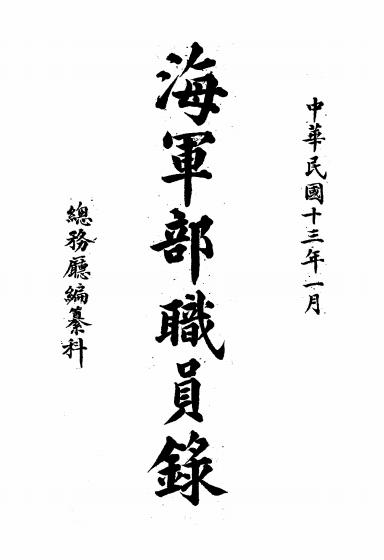 中華民國十三年一月
海軍部職員錄
總務廳編纂科